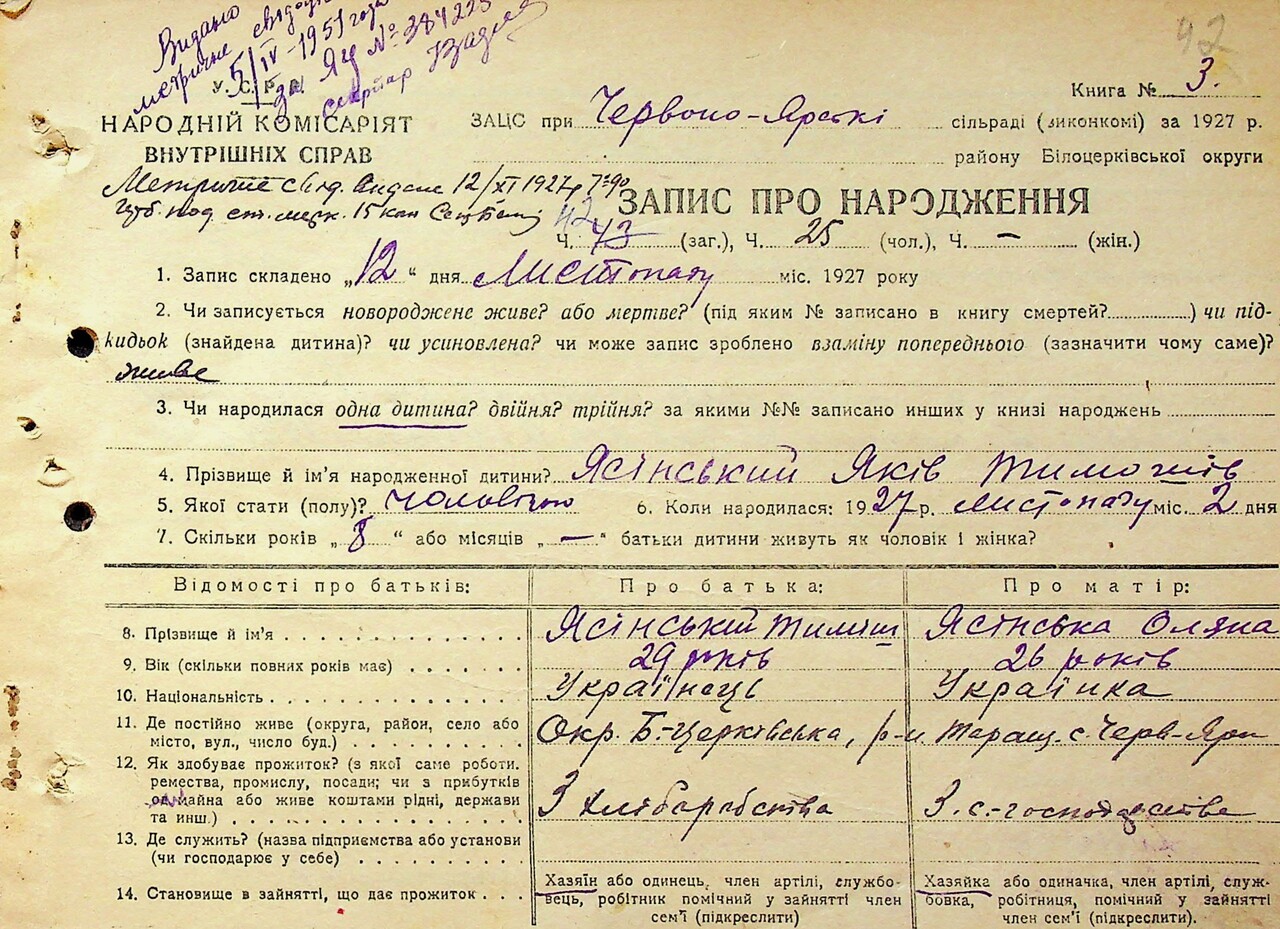 Видано
метричне свідоцт
5/IV-1951 года
за ЯЦ № 384225
секретар
92
У. С. Р. Р.
НАРОДНІЙ КОМІСАРІЯТ
ВНУТРІШНІХ СПРАВ
Книга № 3.
ЗАЦС при Червоно-Ярській сільраді (виконкомі) за 1927 р.
району Білоцерківської округи
Метричне свід. видане 12/XI 1927 р.
ЗАПИС ПРО НАРОДЖЕННЯ
42
Ч. 43 (заг.), Ч. 25 (чол.), Ч. — (жін.)
1. Запис складено „12“ дня Листопаду міс. 1927 року
2. Чи записується новороджене живе? або мертве? (під яким № записано в книгу смертей?) чи під-
кидьок (знайдена дитина)? чи усиновлена? чи може запис зроблено взаміну попереднього (зазначити чому саме)?
живе
3. Чи народилася одна дитина? двійня? трійня? за якими №№ записано инших у книзі народжень
4. Прізвище й ім’я народженної дитини? Ясінський Яків Тимошів
5. Якої стати (полу)? чоловічої 6. Коли народилася: 1927 р. листопаду міс. 2 дня
7. Скільки років „8“ або місяців „—“ батьки дитини живуть як чоловік і жінка?
Відомості про батьків: Про батька: Про матір:
8. Прізвище й ім’я Ясінський Тиміш Ясінська Оляна
9. Вік (скільки повних років має) 29 років 26 років
10. Національність Українець Українка
11. Де постійно живе (округа, район, село або
місто, вул., число буд.) Окр. Б.-Церківська, р-н Таращ. с. Черв-Яри
12. Як здобуває прожиток? (з якої саме роботи.
ремества, промислу, посади; чи з прибутків
од майна або живе коштами рідні, держави
та инш.) З хліборобства З с.-господарства
13. Де служить? (назва підприємства або установи
(чи господарює у себе)
14. Становище в зайнятті, що дає прожиток
Хазяїн або одинець, член артілі, службо-
вець, робітник помічний у зайнятті член
сем’ї (підкреслити)
Хазяйка або одиначка, член артілі, служ-
бовка, робітниця, помічний у зайнятті
член сем’ї (підкреслити).